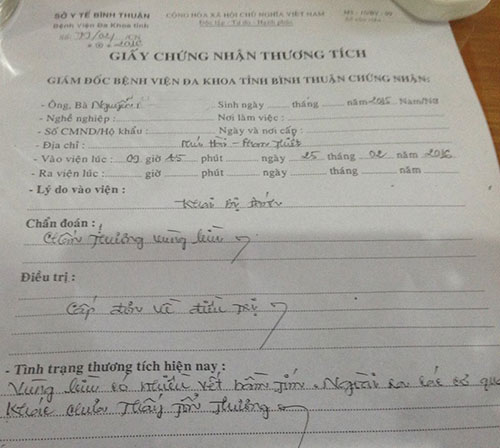 SỞ Y TẾ BÌNH THUẬN CỘNG HÒA XÃ HỘI CHỦ NGHĨA VIỆT NAM
Bệnh viện Đa Khoa tỉnh Độc lập - Tự do - Hạnh phúc
GIẤY CHỨNG NHẬN THƯƠNG TÍCH
GIÁM ĐỐC BỆNH VIỆN ĐA KHOA TỈNH BÌNH THUẬN CHỨNG NHẬN:
- Ông, Bà Nguyễn Sinh ngày tháng năm 2015 Nam/Nữ
- Nghề nghiệp : Nơi làm việc :
- Số CMND/Hộ khẩu : Ngày và nơi cấp
- Địa chỉ : - Phan Thiết
- Vào viện lúc : 09 giờ 45 phút ngày 25 tháng 02 năm 2016
- Ra viện lúc : giờ phút ngày tháng năm
- Lý do vào viện :
Khai bị đánh
Chẩn đoán :
Chấn thương vùng lưng
Điều trị :
Cấp đơn về điều trị
- Tình trạng thương tích hiện nay :
Vùng lưng có nhiều vết bầm tím. Ngoài ra các cơ qua
khác chưa thấy tổn thương